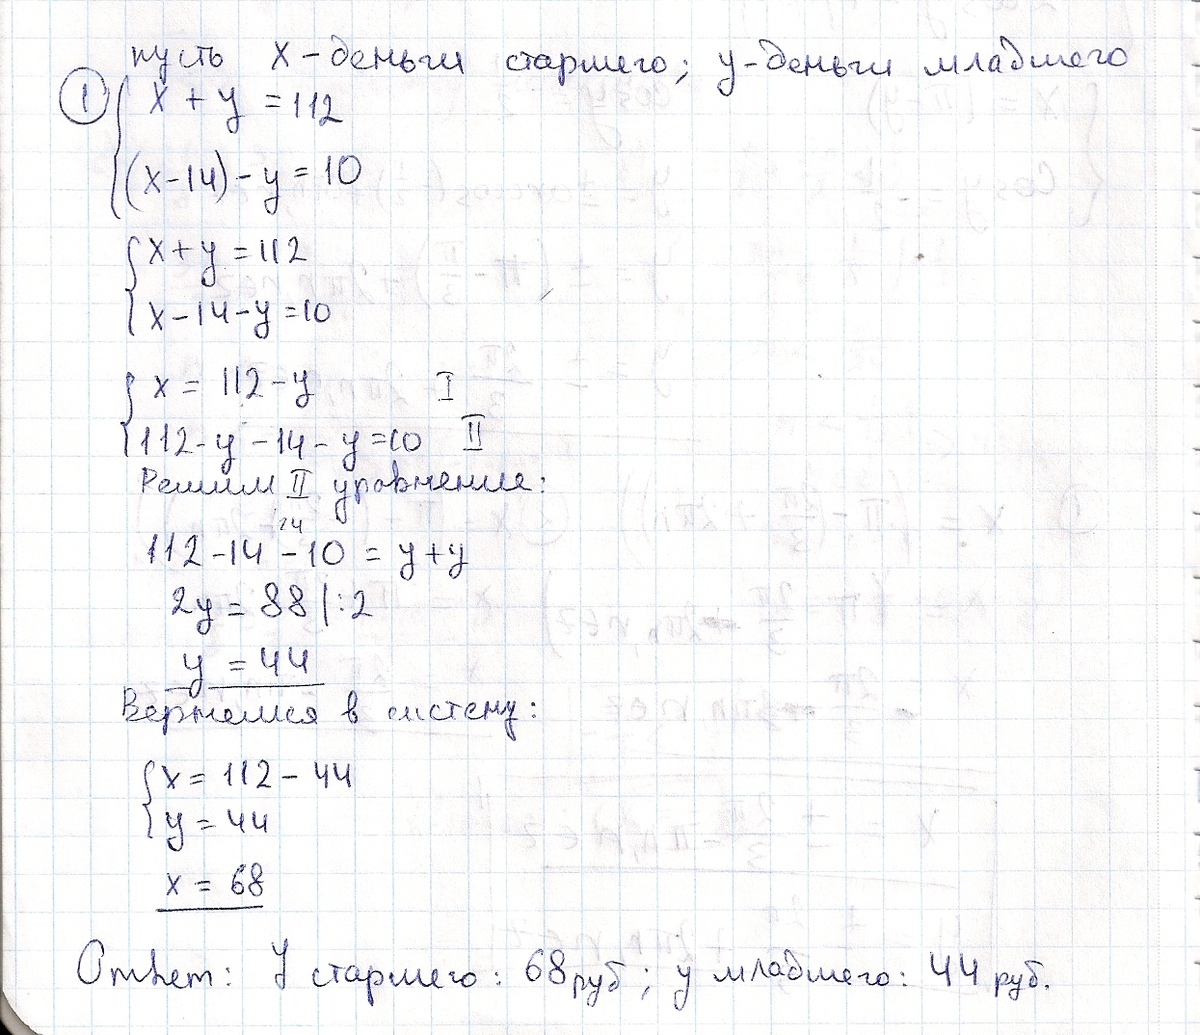 пусть x - деньги старшего; y - деньги младшего
① { x + y = 112
(x-14) - y = 10
{ x + y = 112
x - 14 - y = 10
{ x = 112 - y I
112 - y - 14 - y = 10 II
Решим II уравнение:
112 - 14 - 10 = y + y
2y = 88 |:2
y = 44
Вернемся в систему:
{ x = 112 - 44
y = 44
x = 68
Ответ: У старшего: 68 руб; у младшего: 44 руб.